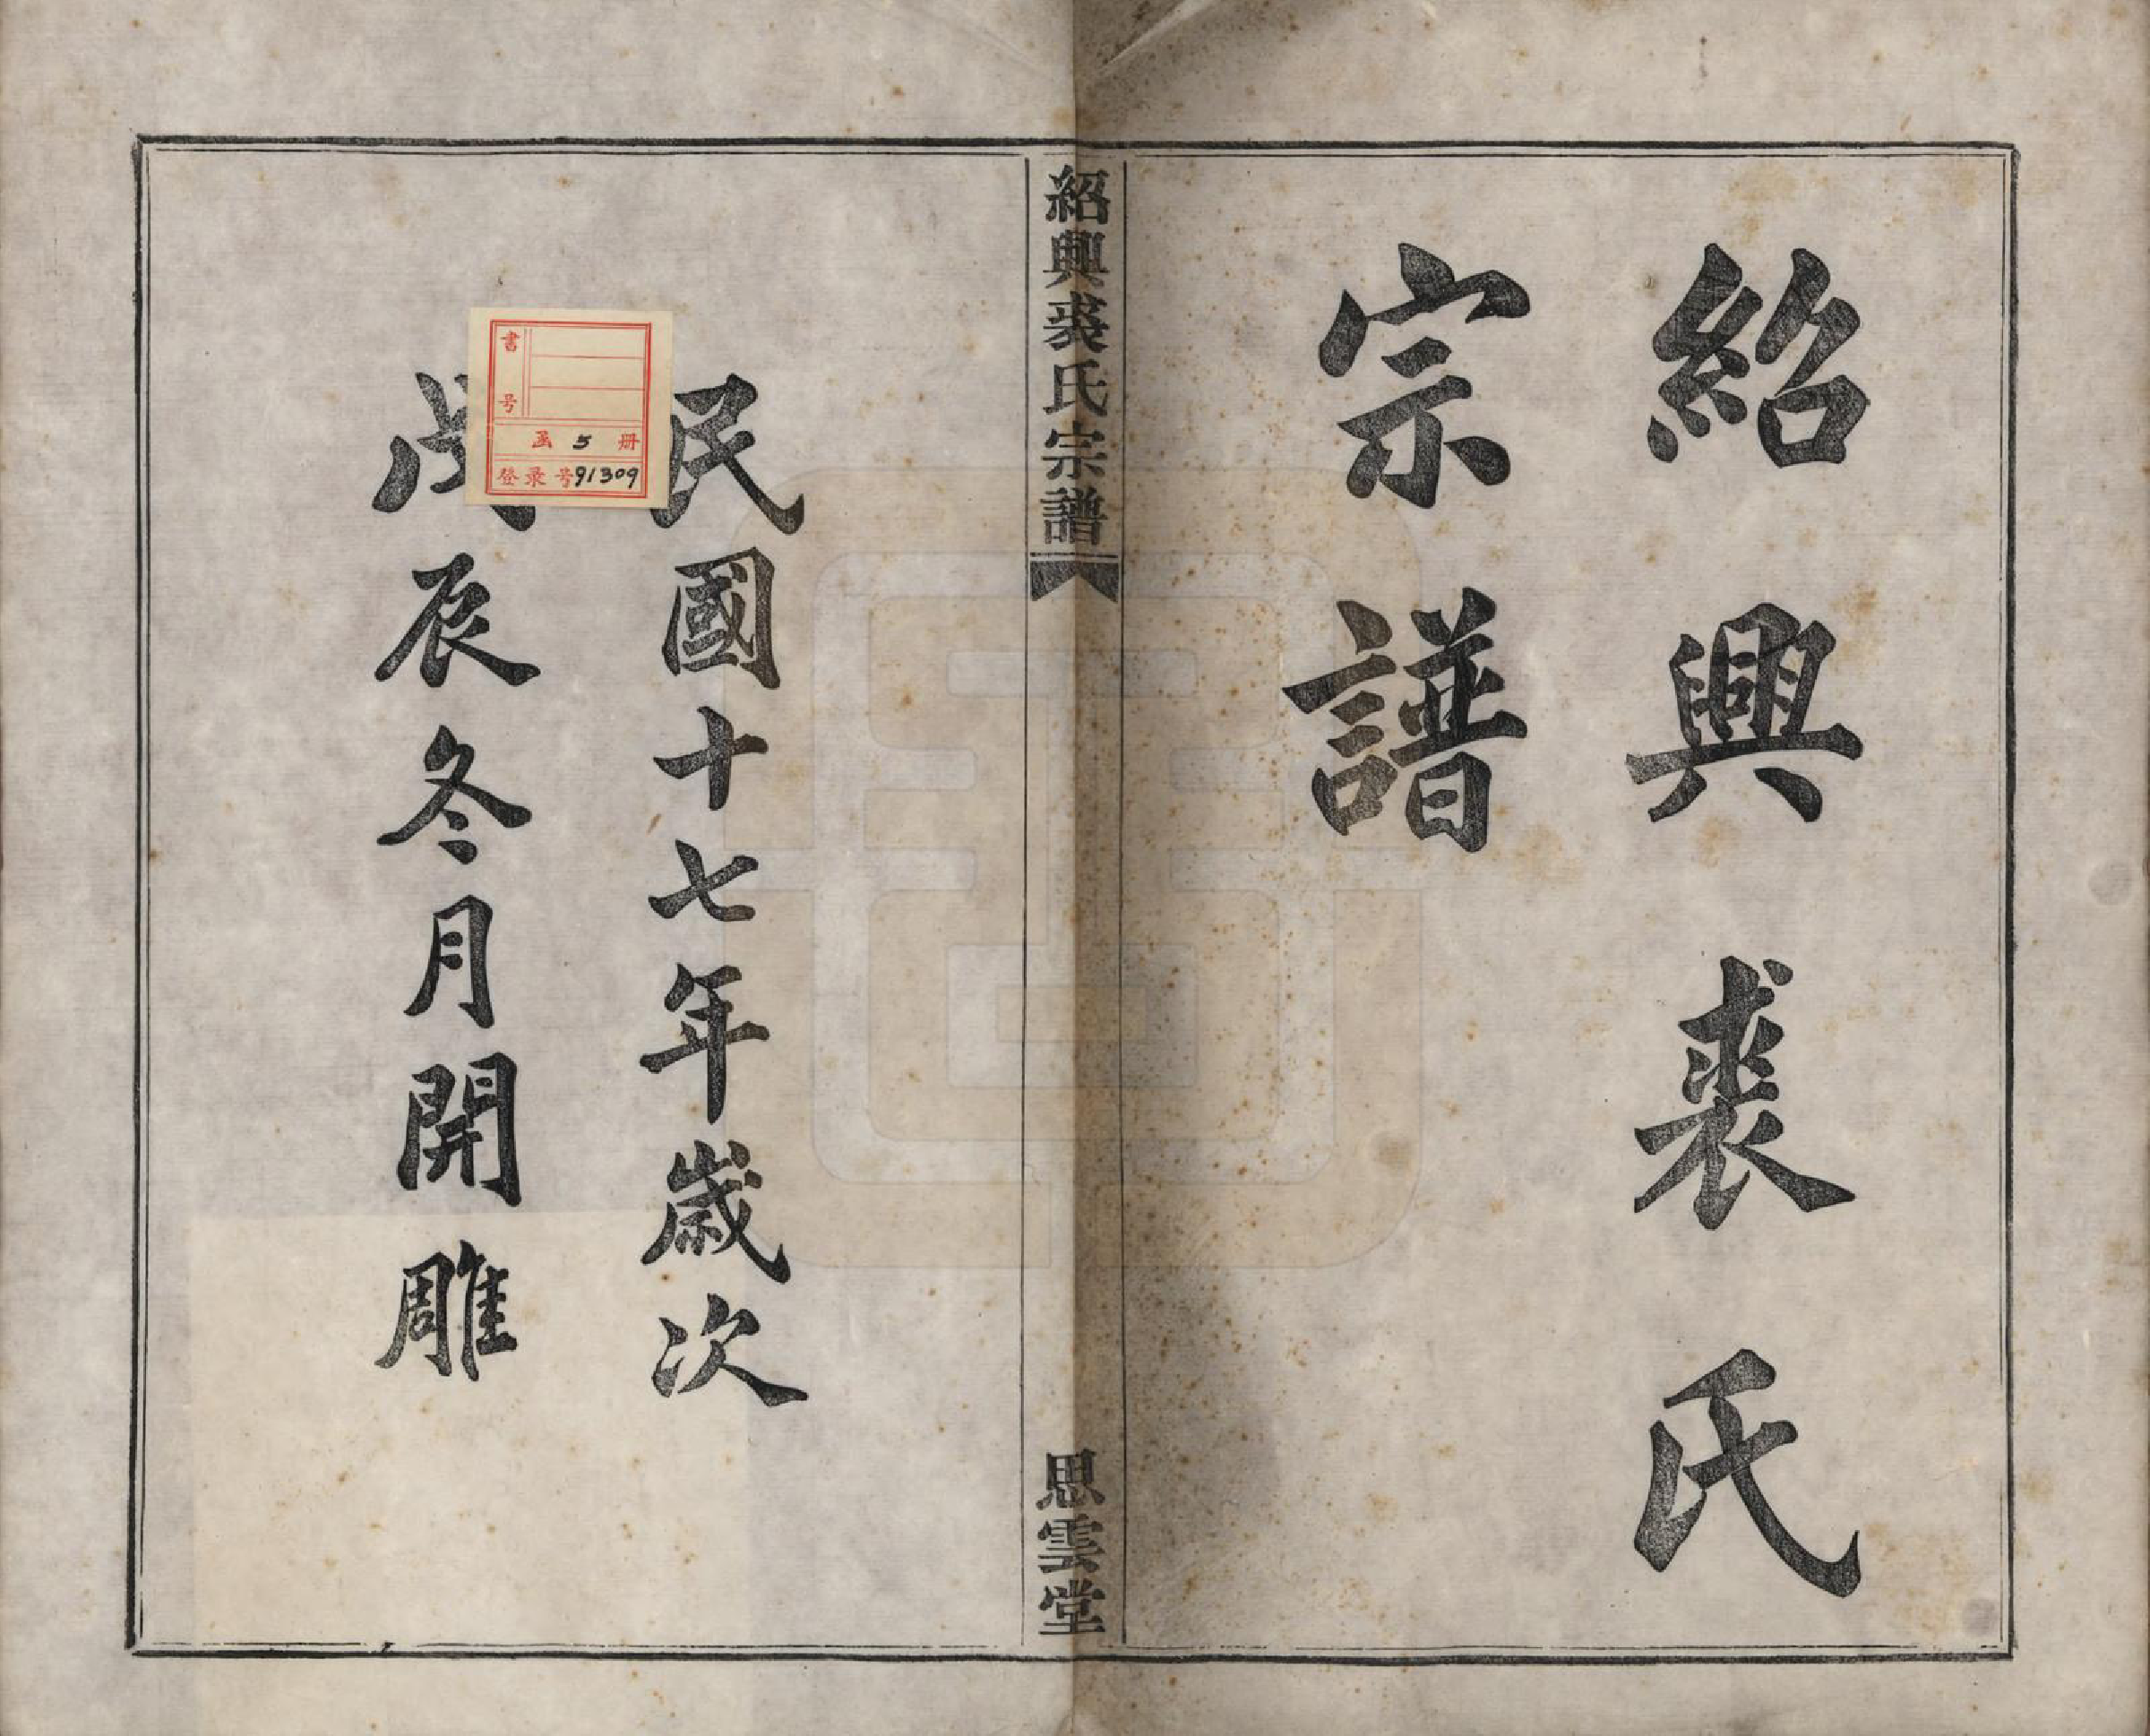 紹興裘氏
宗譜
紹興裘氏宗譜
思雲堂
民國十七年歲次
戊辰冬月開雕
書号
函 5 册
登录号91309